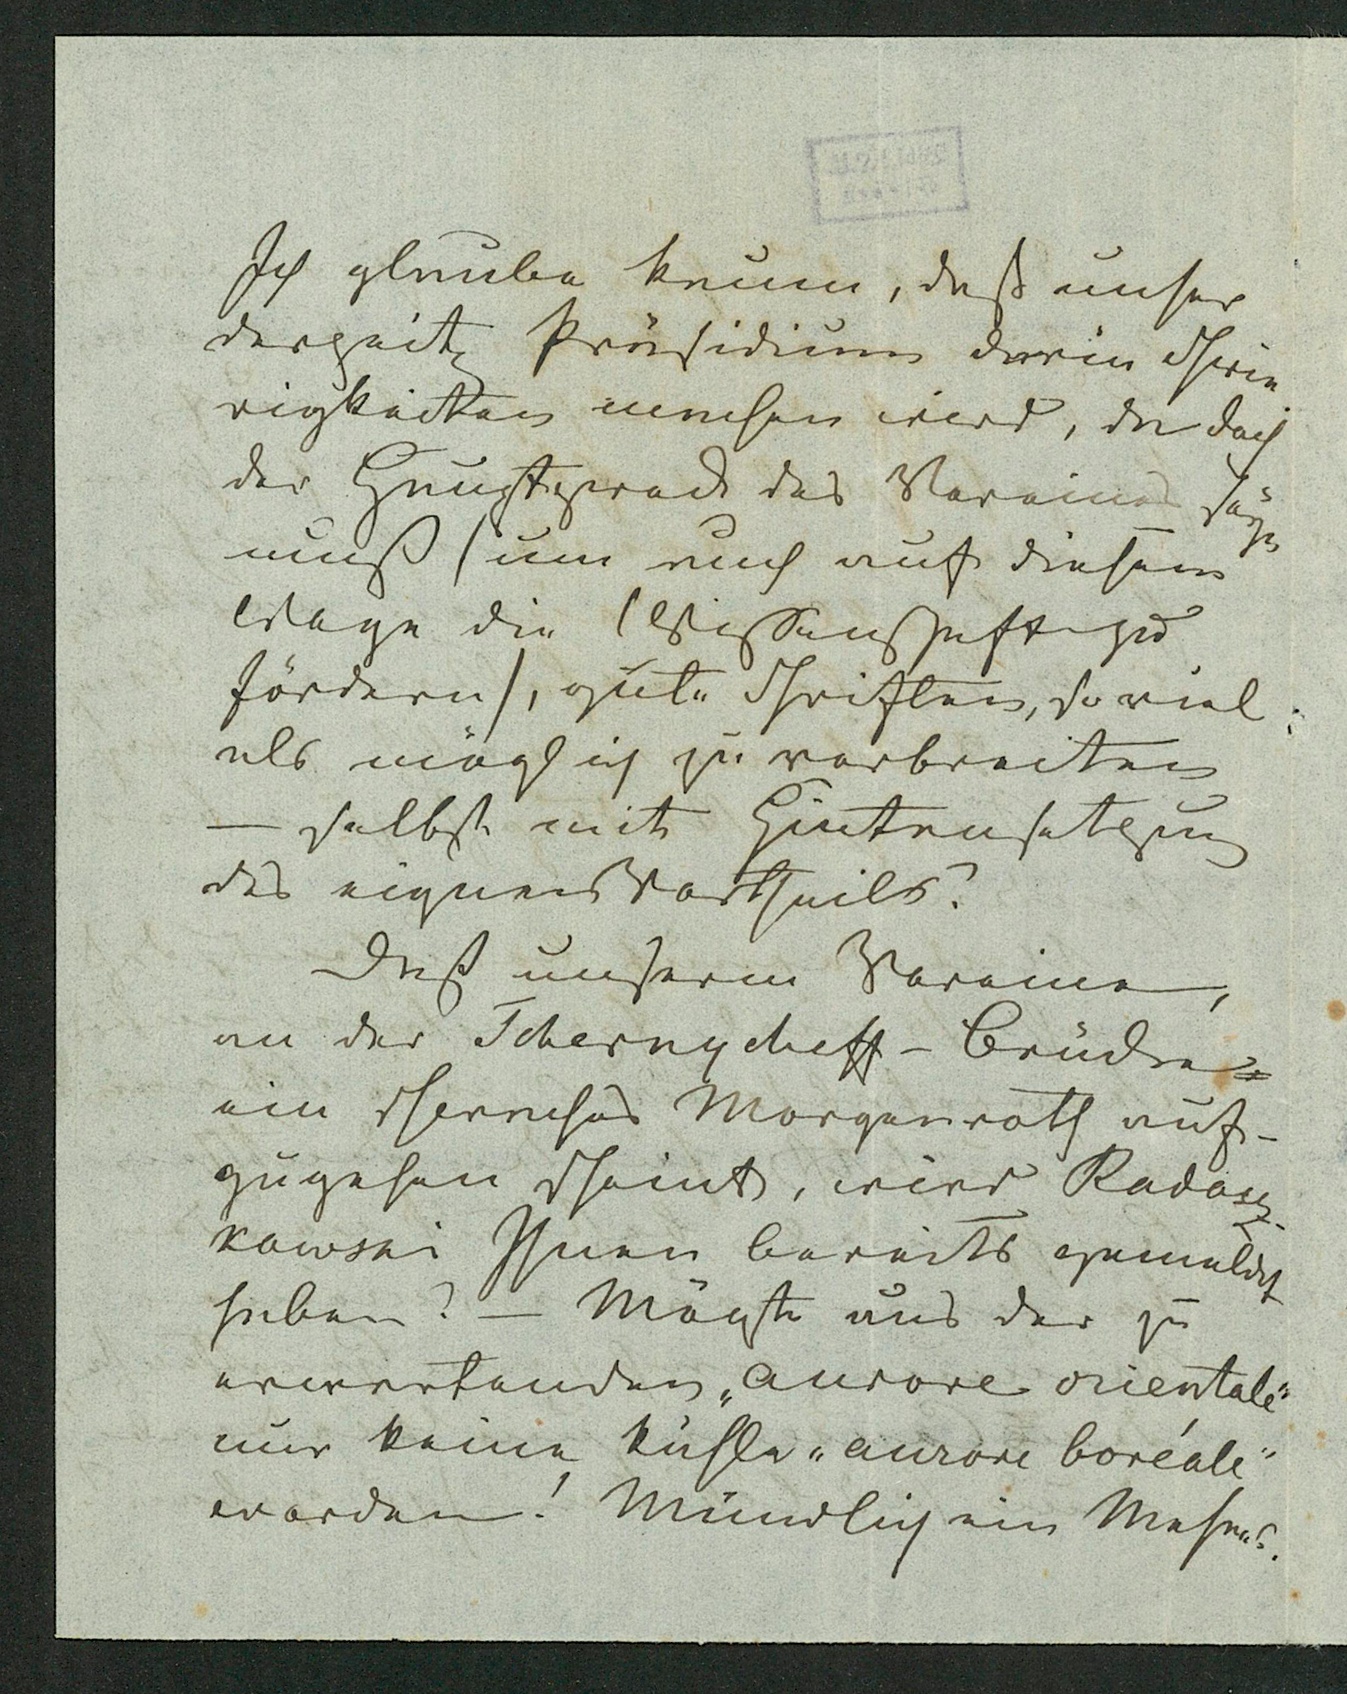 Ich glaube kaum, daß unser
derzeitg Präsidium darin Schwie
rigkeiten machen wird, da doch
der Hauptzweck des Vereines sein
muß (um auch auf diesem
Wege die Wissenschaft zu
fördern), gute Schriften, so viel
als möglich zu verbreiten
— selbst mit Hintansetzung
des eignen Vortheils?
Daß unserm Vereine,
an der Tschernycheff-Brücke
ein schwaches Morgenroth auf-
zugehen scheint, wird Radosz-
kowski Ihnen bereits gemeldet
haben? — Möchte aus der zu
erwartenden „aurore orientale"
nur keine kühle „aurore boréale"
werden! Mündlich ein Mehres.